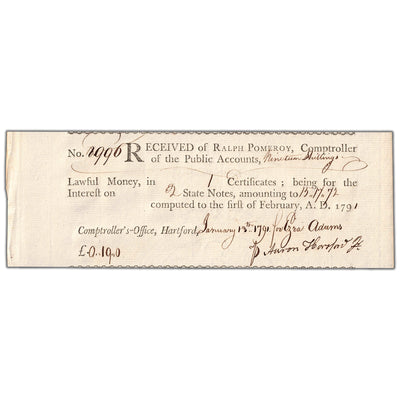 No. 2996 RECEIVED of RALPH POMEROY, Comptroller
of the Public Accounts, Nineteen Shillings
Lawful Money, in 1 Certificates; being for
Interest on 2 State Notes, amounting to 15.17.
computed to the first of February, A. D. 1791
Comptroller's-Office, Hartford, January 13th. 1791 for Ezra Adams
£0.19.0 Aaron